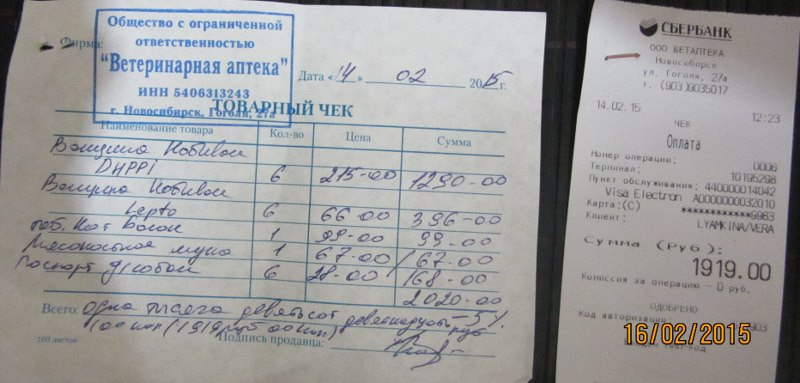 Фирма:
Общество с ограниченной
ответственностью
"Ветеринарная аптека"
ИНН 5406313243
г. Новосибирск, Гоголя, 27а
Дата «14» 02 2015г.
ТОВАРНЫЙ ЧЕК
Наименование товара Кол-во Цена Сумма
Вакцина Нобивак
DHPPi 6 215-00 1290-00
Вакцина Нобивак
Lepto 6 66-00 396-00
1 99-00 99-00
Мясокостная мука 1 67-00 167-00
Паспорт 6 28-00 168-00
2020-00
Всего: одна тысяча девятьсот девятнадцать руб - 5%
00 коп (1919 руб 00 коп)
100 листов Подпись продавца:
СБЕРБАНК
ООО ВЕТАПТЕКА
Новосибирск
ул. Гоголя, 27а
т. (903)9035017
14.02.15 12:23
ЧЕК
Оплата
Номер операции: 0006
Терминал: 10195298
Пункт обслуживания: 440000014042
Visa Electron A0000000032010
Карта:(C) ************9963
Клиент: LYAMKINA/VERA
Сумма (Руб):
1919.00
Комиссия за операцию - 0 руб.
ОДОБРЕНО
Код авторизации: 903
16/02/2015